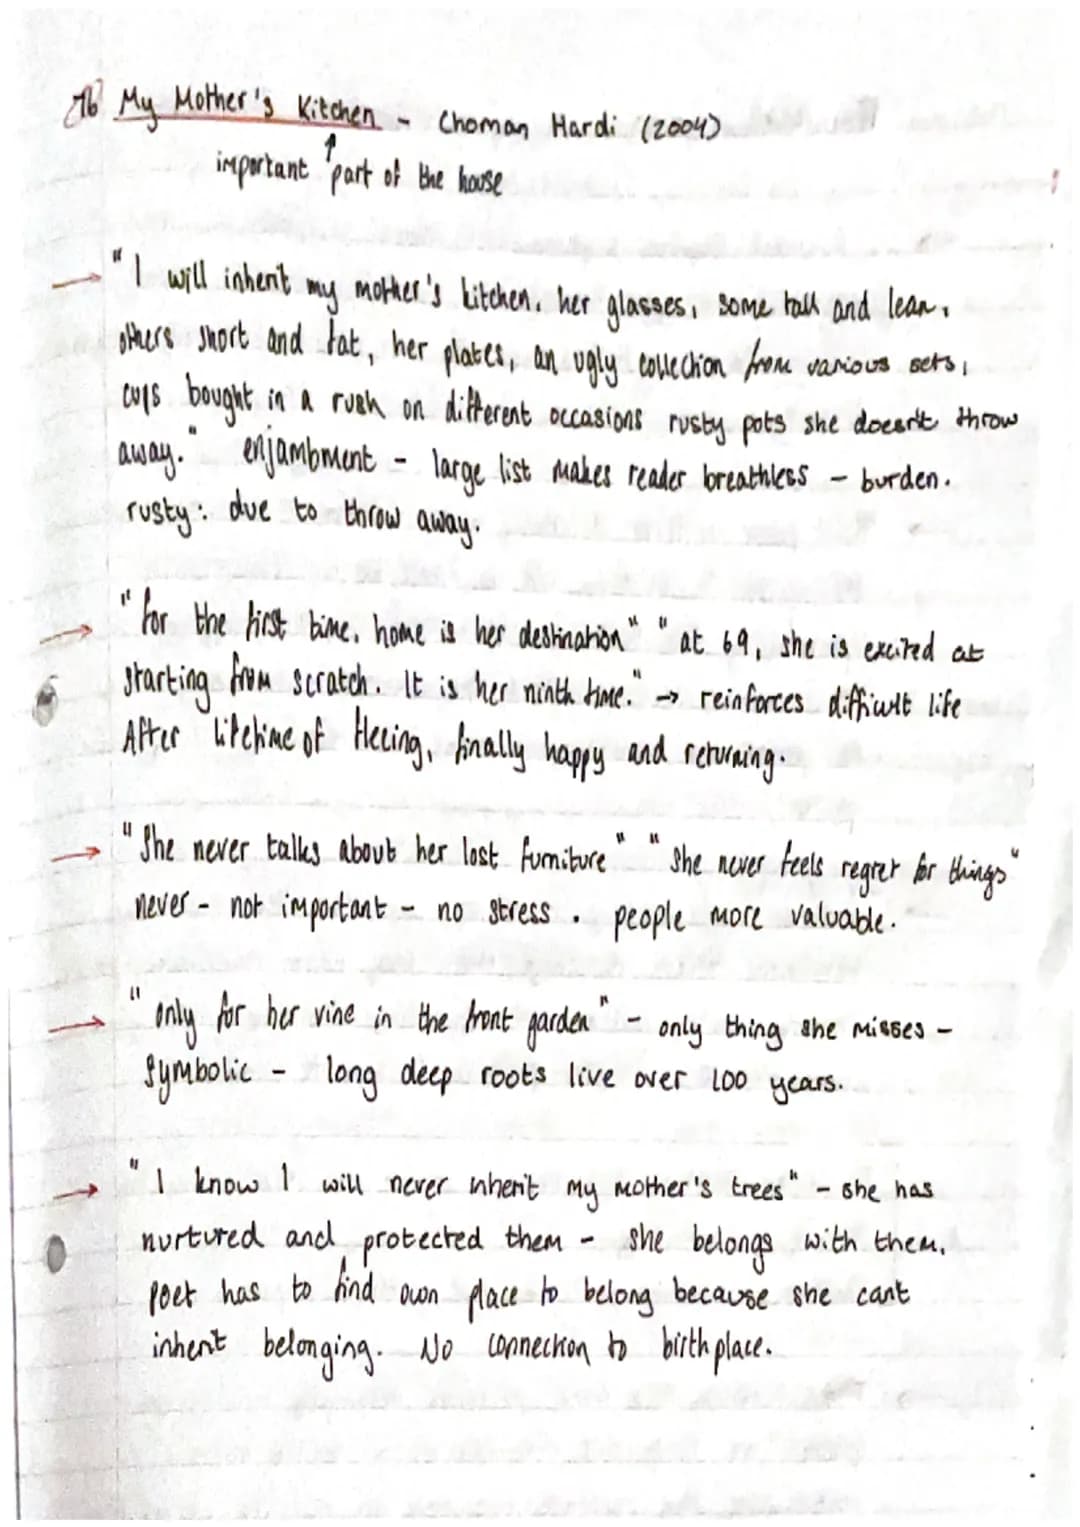 76 My Mother's Kitchen - Choman Hardi (2004)
↑
important part of the house
→ "I will inherit my mother's kitchen, her glasses, some tall and lean,
others short and fat, her plates, an ugly collection from various sets,
cups bought in a rush on different occasions rusty pots she doesn't throw
away." enjambment - large list makes reader breathless - burden.
rusty: due to throw away.
→ "for the first time, home is her destination" "at 69, she is excited at
starting from scratch. It is her ninth time." → reinforces difficult life
After lifetime of fleeing, finally happy and returning.
→ "She never talks about her lost furniture" "she never feels regret for things"
never - not important - no stress. people more valuable.
→ "only for her vine in the front garden" - only thing she misses -
symbolic - long deep roots live over 100 years.
→ "I know I will never inherit my mother's trees" - she has
nurtured and protected them - she belongs with them,
poet has to find own place to belong because she cant
inherit belonging. No connection to birthplace.